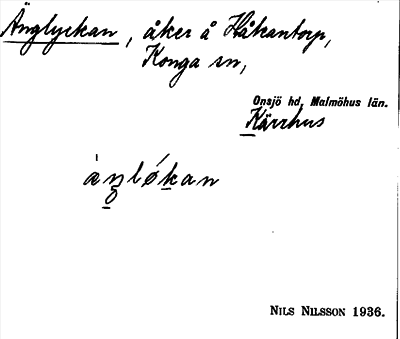 Änglyckan, åker å Håkantorp,
Konga sn,
Onsjö hd, Malmöhus län.
Kärrhus
àŋlókan
NILS NILSSON 1936.